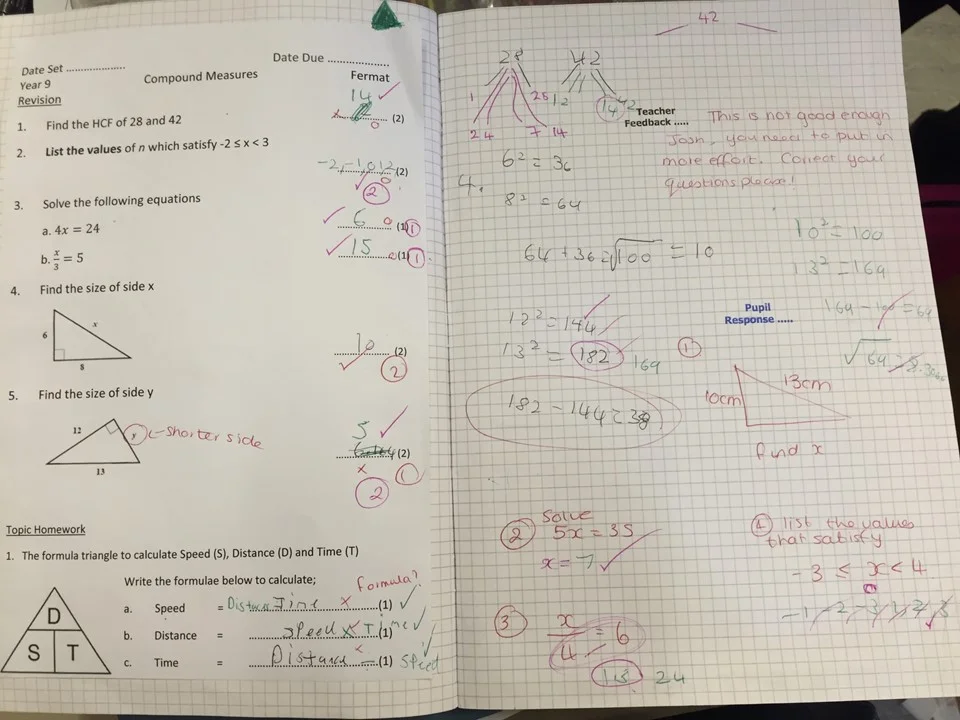 Date Set ....................
Date Due ....................
Year 9
Compound Measures
Fermat
Revision
14
1. Find the HCF of 28 and 42
(2)
0
2. List the values of n which satisfy -2 ≤ x < 3
-2,-1,0,1,2 (2)
2
3. Solve the following equations
a. 4x = 24
6 0 (1) 1
b. x/3 = 5
15 0 (1) 1
4. Find the size of side x
6
x
8
10 (2)
2
5. Find the size of side y
12
y
<-Shorter side
13
5
(2)
x
1
2
Topic Homework
1. The formula triangle to calculate Speed (S), Distance (D) and Time (T)
Write the formulae below to calculate;
formula?
D
S T
a. Speed = Distance Time x (1)
b. Distance = Speed x Time (1)
c. Time = Distance (1) Speed
42
28 42
1 28 1 2 14 42
2 4 7 14
Teacher
Feedback .....
This is not good enough
Josh, you need to put in
more effort. Correct your
questions please!
4.
6² = 36
8² = 64
64 + 36 = √100 = 10
10² = 100
13² = 169
169 - 100 = 69
√69 =
12² = 144
13² = 182 169
182 - 144 = 38
Pupil
Response .....
1
10cm
13cm
find x
2 Solve
5x = 35
x = 7
4 list the values
that satisfy
-3 ≤ x < 4
3 x/4 = 6
24